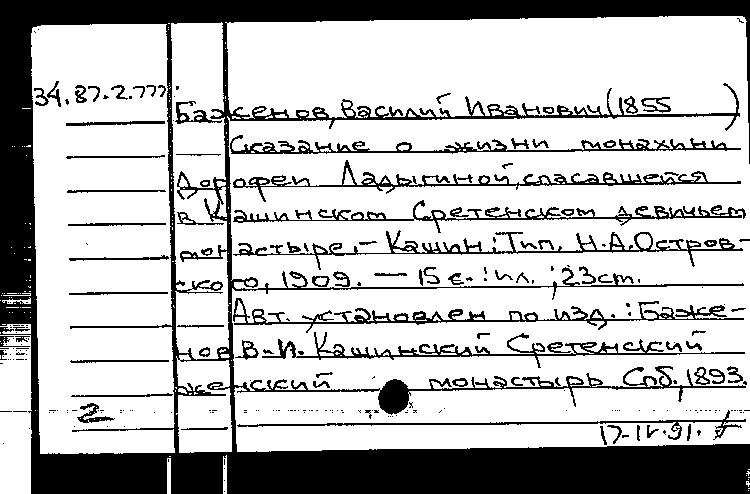 34.87.2.777.
Баженов, Василий Иванович (1855 )
Сказание о жизни монахини
Дорофеи Ладыгиной, спасавшейся
в Кашинском Сретенском девичьем
монастыре. - Кашин: Тип. Н.А. Островско-
ско го, 1909. — 15 с. : ил. ; 23 ст.
Авт. установлен по изд.: Баже-
нов В.И. Кашинский Сретенский
женский монастырь Спб., 1893.
2
17-IV-91.